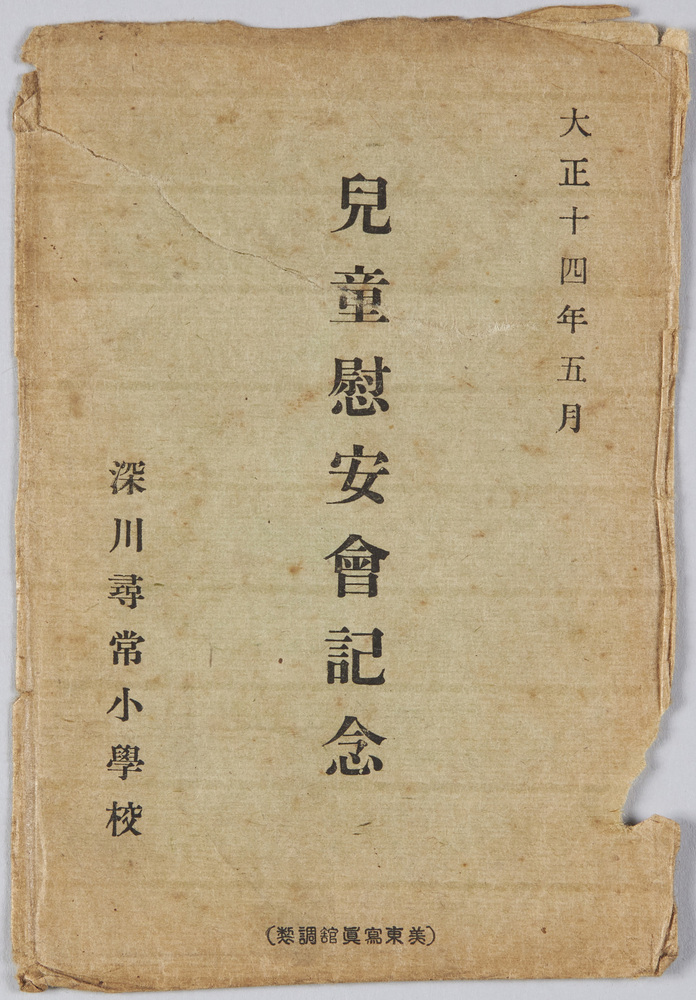 大正十四年五月
兒童慰安會記念
深川尋常小學校
(美東寫眞舘調製)